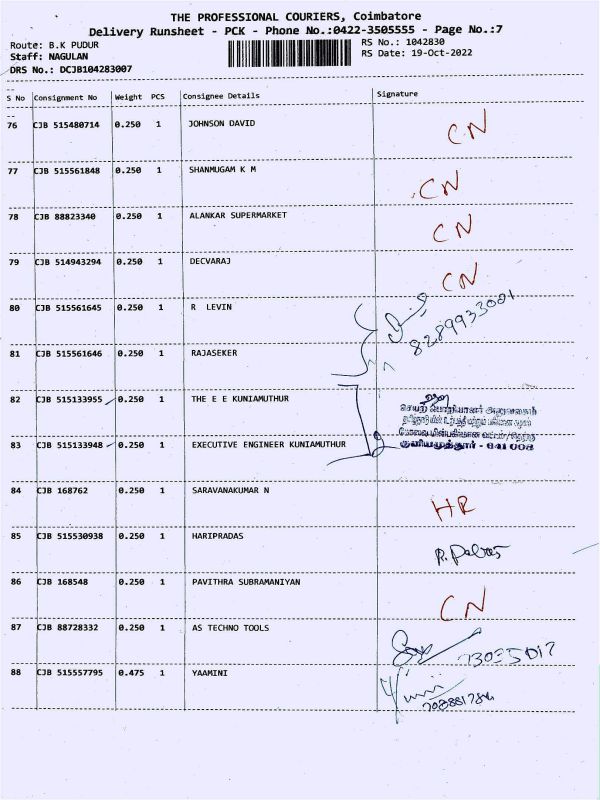 THE PROFESSIONAL COURIERS, Coimbatore
Delivery Runsheet - PCK - Phone No.:0422-3505555 - Page No.:7
Route: B.K PUDUR
RS No.: 1042830
Staff: NAGULAN
RS Date: 19-Oct-2022
DRS No.: DCJB104283007
S No Consignment No Weight PCS Consignee Details Signature
76 CJB 515480714 0.250 1 JOHNSON DAVID CN
77 CJB 515561848 0.250 1 SHANMUGAM K M CN
78 CJB 88823340 0.250 1 ALANKAR SUPERMARKET CN
79 CJB 514943294 0.250 1 DECVARAJ CN
80 CJB 515561645 0.250 1 R LEVIN
8289933001
81 CJB 515561646 0.250 1 RAJASEKER
82 CJB 515133955 0.250 1 THE E E KUNIAMUTHUR
செயற் பொறியாளர் அலுவலகம்
83 CJB 515133948 0.250 1 EXECUTIVE ENGINEER KUNIAMUTHUR
குனியமுத்தூர் - 641 008
84 CJB 168762 0.250 1 SARAVANAKUMAR N HR
85 CJB 515530938 0.250 1 HARIPRADAS
86 CJB 168548 0.250 1 PAVITHRA SUBRAMANIYAN CN
87 CJB 88728332 0.250 1 AS TECHNO TOOLS
88 CJB 515557795 0.475 1 YAAMINI